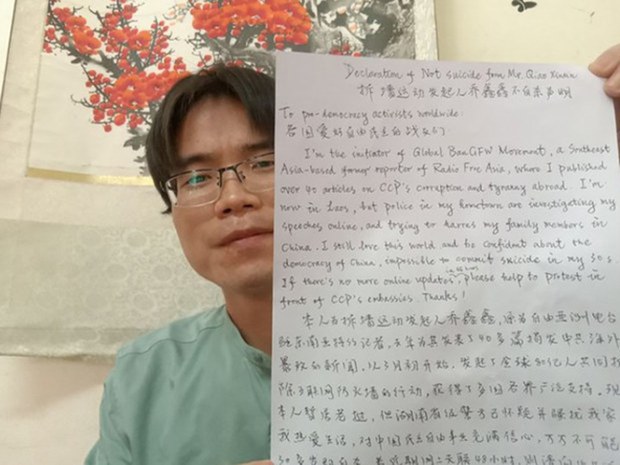 Declaration of Not suicide from Mr. Qiao Xinxin
拆墙运动发起人乔鑫鑫不自杀声明
To pro-democracy activists worldwide:
各国爱好自由民主的战友们
I'm the initiator of Global BanGFW Movement, a Southeast
Asia-based former reporter of Radio Free Asia, where I published
over 40 articles on CCP's corruption and tyranny abroad. I'm
now in Laos, but police in my hometown are investigating my
speeches online, and trying to harass my family members in
China. I still love this world and be confident about the
democracy of China, impossible to commit suicide in my 30s.
If there's no more online updates in 48 hours, please help to protest in
front of CCP's embassies. Thanks!
本人为拆墙运动发起人乔鑫鑫,原为自由亚洲电台
驻东南亚特约记者,去年为其发表了40多篇揭发中共海外
暴政的新闻,从3月初开始,发起了全球知亿人共同拆
除互联网防火墙的行动,获得了多国各界广泛支持。现
本人暂居老挝,但湖南有征警方已怀疑并骚扰我家
我热爱生活,对中国民主自由事业充满信心,万万不可能